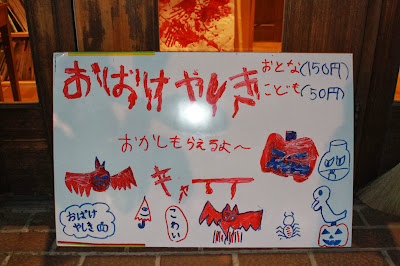 おばけやしき
おとな(150円)
こども(50円)
おかしもらえるよ〜
キャーー
おばけ
やしき
こわい